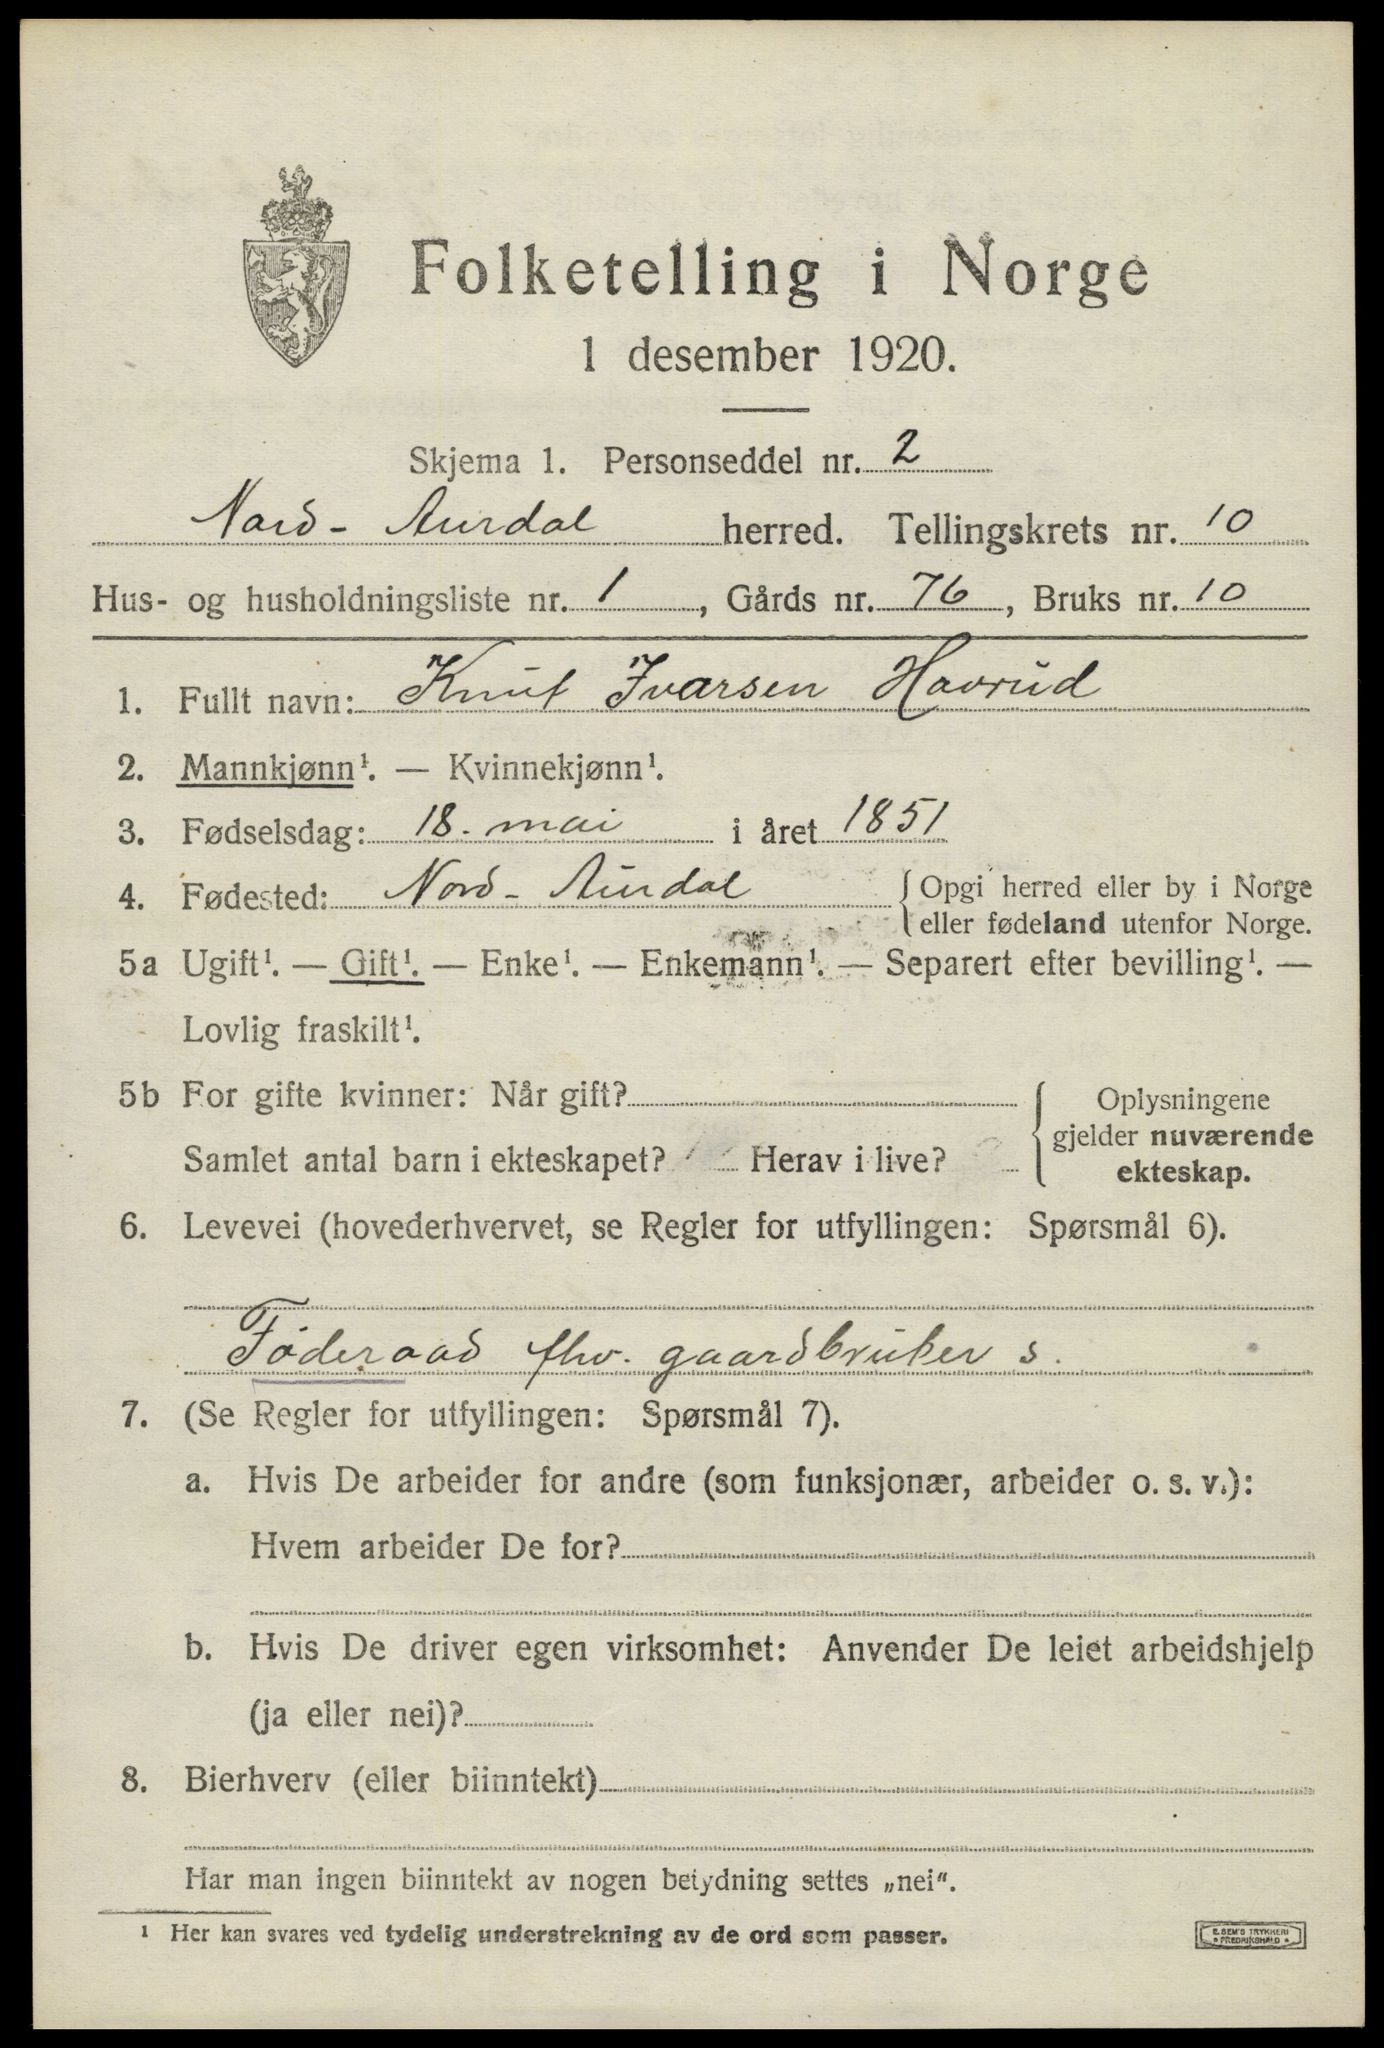 Folketelling i Norge
1 desember 1920.
Skjema 1. Personseddel nr. 2
Nord-Aurdal herred. Tellingskrets nr. 10
Hus- og husholdningsliste nr. 1, Gårds nr. 76, Bruks nr. 10
1. Fullt navn: Knut Ivarsen Havrud
2. Mannkjønn¹. — Kvinnekjønn¹.
3. Fødselsdag: 18. mai i året 1851
4. Fødested: Nord-Aurdal { Opgi herred eller by i Norge
eller fødeland utenfor Norge.
5a Ugift¹. — Gift¹. — Enke¹. — Enkemann¹. — Separert efter bevilling¹. —
Lovlig fraskilt¹.
5b For gifte kvinner: Når gift?
Samlet antal barn i ekteskapet? Herav i live?
{ Oplysningene
gjelder nuværende
ekteskap.
6. Levevei (hovederhvervet, se Regler for utfyllingen: Spørsmål 6).
Føderaad fhv. gaardbruker s.
7. (Se Regler for utfyllingen: Spørsmål 7).
a. Hvis De arbeider for andre (som funksjonær, arbeider o. s. v.):
Hvem arbeider De for?
b. Hvis De driver egen virksomhet: Anvender De leiet arbeidshjelp
(ja eller nei)?
8. Bierhverv (eller biinntekt)
Har man ingen biinntekt av nogen betydning settes „nei".
¹ Her kan svares ved tydelig understrekning av de ord som passer.
E. SEM'S TRYKKERI
FREDRIKSHALD